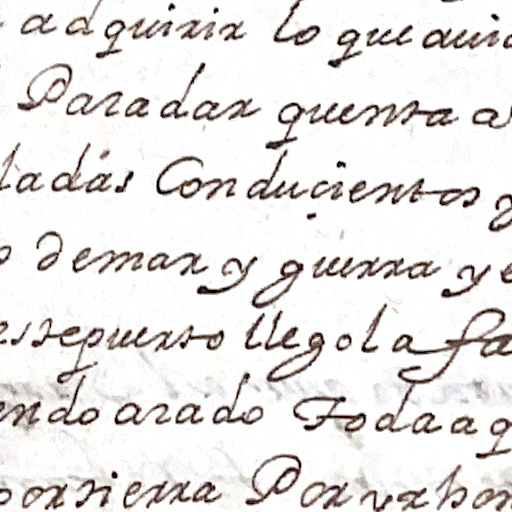 adquirir lo que avia
Para dar quenta a
ladas Con duçientos y
demar y guerra y e
este puerto llego la fa
endo arado Toda a q
por tierra Por